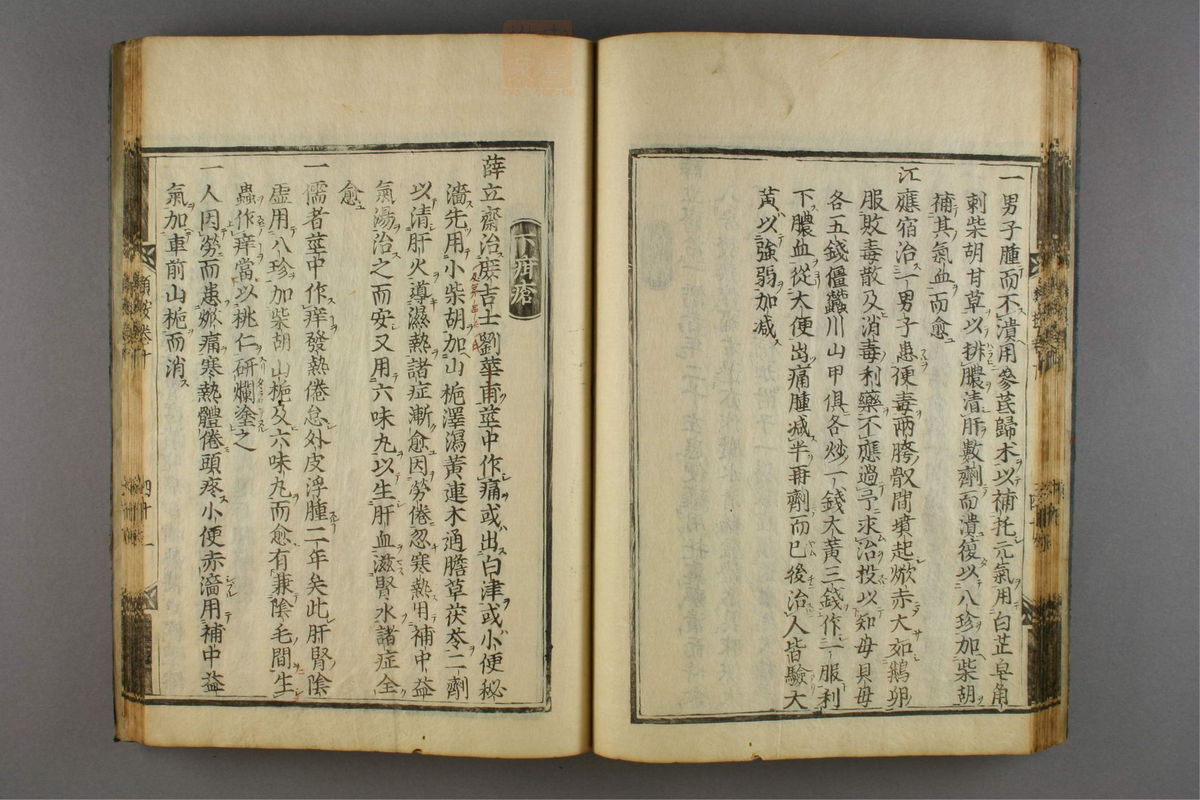 一男子腫而不潰用參芪歸术以補托元氣用白芷皂角
刺柴胡甘草以排膿清肝數劑而潰復以八珍加柴胡
補其氣血而愈
江應宿治一男子患便毒兩胯㪚間墳起焮赤大如鵝卵
服敗毒散及消毒利藥不應過予求治投以知毋貝毋
各五錢僵蠶川山甲俱各炒一錢大黃三錢作一服利
下膿血從大便出痛腫减半再劑而已後治人皆驗大
黃以強弱加减
下疳瘡
薛立齋治庶吉士劉華甫莖中作痛或出白津或小便秘
濇先用小柴胡加山梔澤瀉黃連木通膽草茯苓二劑
以清肝火導濕熱諸症漸愈因勞倦忽寒熱用補中益
氣湯治之而安又用六味丸以生肝血滋腎水諸症全
愈
一儒者莖中作痒發熱倦怠外皮浮腫二年矣此肝腎陰
虛用八珍加柴胡山梔及六味丸而愈有兼陰毛間生
蟲作痒當以桃仁研爛塗之
一人因勞而患焮痛寒熱體倦頭疼小便赤濇用補中益
氣加車前山梔而消
類按卷十
四十一